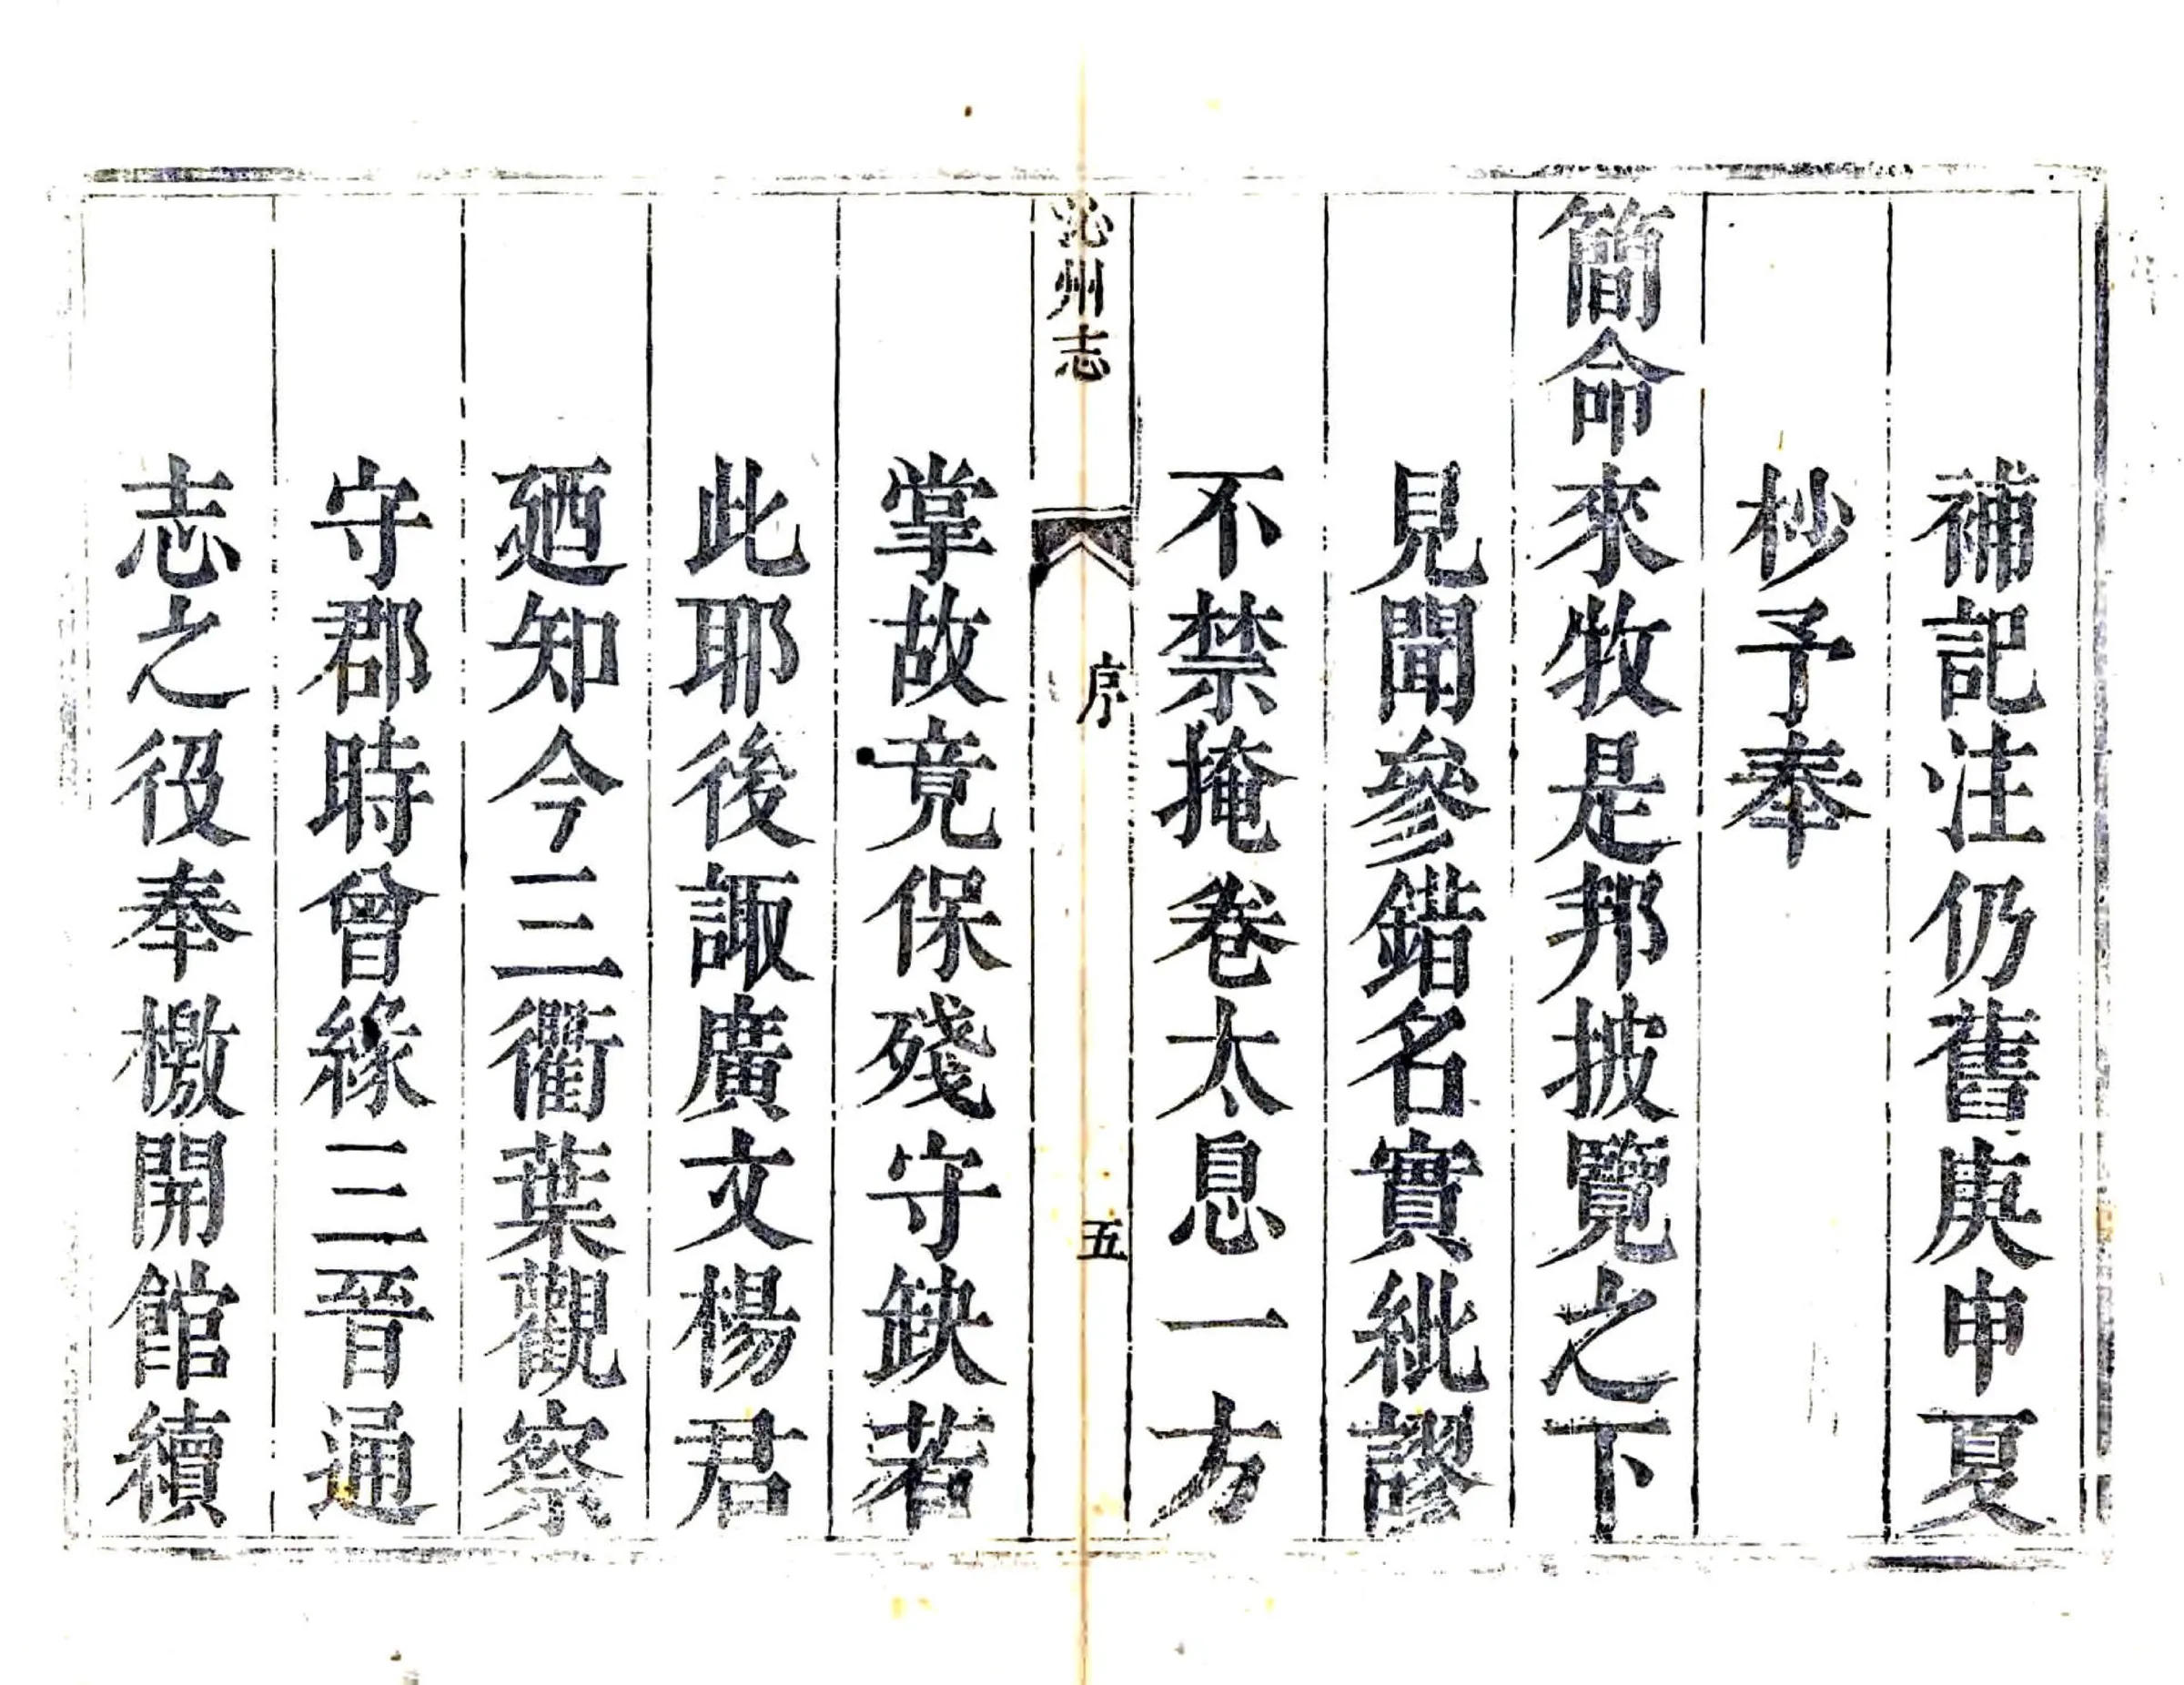 補記注仍舊庚申夏
杪予奉
簡命來牧是邦披覽之下
見聞參錯名實紕謬
不禁掩卷太息一方
沁州志
序
五
掌故竟保殘守缺若
此耶後諏廣文楊君
廼知今三衢葉觀察
守郡時曾緣三晉通
志之役奉檄開館續